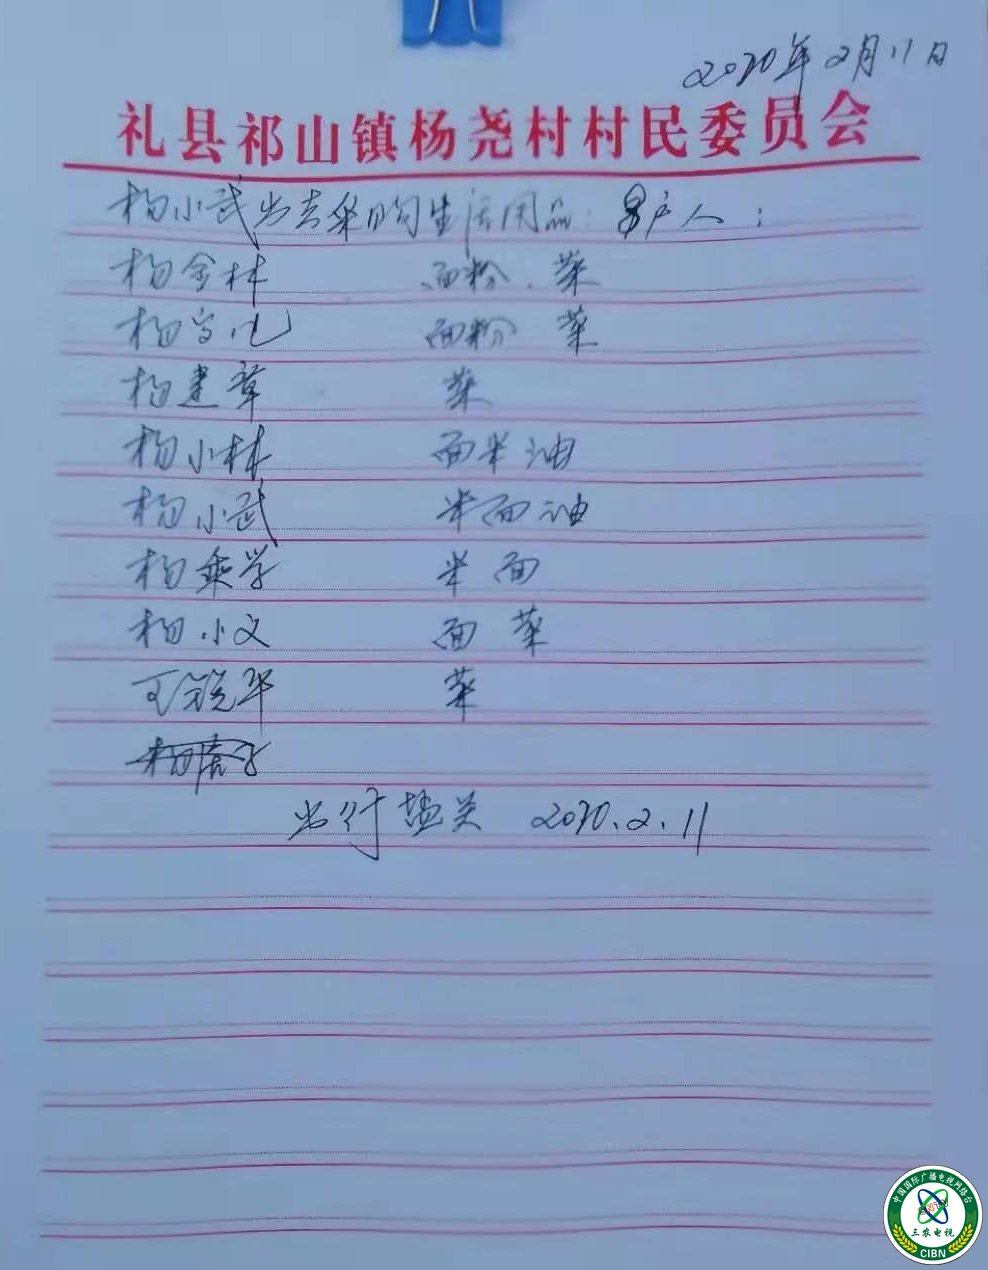 2020年2月11日
礼县祁山镇杨尧村村民委员会
杨小武出去采购生活用品: 8户人:
杨金林 面粉、菜
杨 面粉 菜
杨建章 菜
杨小林 面米油
杨小武 米面油
杨乘学 米面
杨小文 面 菜
王锐华 菜
出行盐关 2020.2.11
中国国际广播电视网络台
三农电视
CIBN